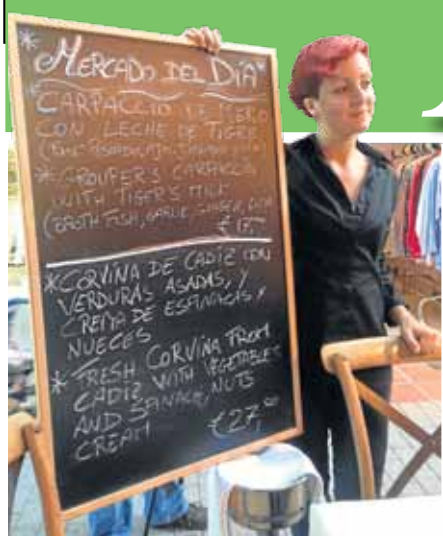 *MERCADO DEL DÍA*
*CARPACCIO DE MERO
CON LECHE DE TIGRE
*GROUPER'S CARPACCIO
WITH TIGER'S MILK
(BROTH FISH, GARLIC, GINGER,
€17,-
*CORVINA DE CADIZ CON
VERDURAS ASADAS, Y
CREMA DE ESPINACAS Y
NUECES
* FRESH CORVINA FROM
CADIZ WITH VEGETABLES
AND SPINACH, NUTS
CREAM €27,00